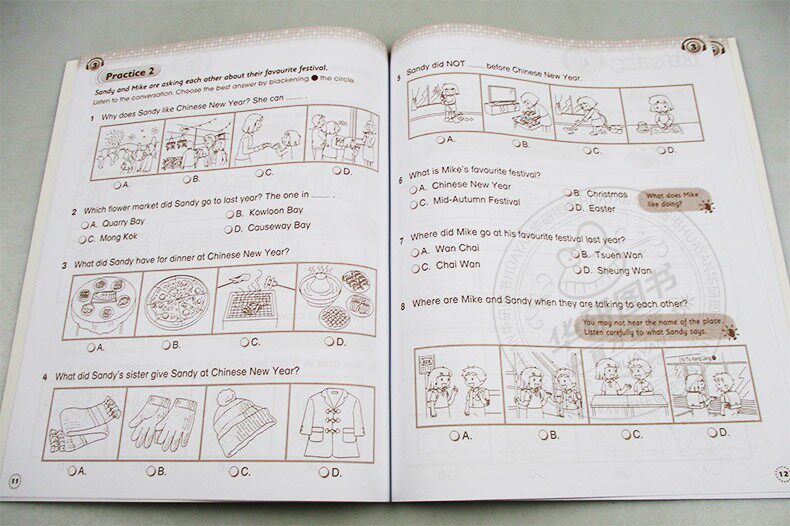 3
Practice 2
Sandy and Mike are asking each other about their favourite festival.
Listen to the conversation. Choose the best answer by blackening ● the circle.
1 Why does Sandy like Chinese New Year? She can ____ .
A. B. C. D.
2 Which flower market did Sandy go to last year? The one in ____ .
A. Quarry Bay B. Kowloon Bay
C. Mong Kok D. Causeway Bay
3 What did Sandy have for dinner at Chinese New Year?
A. B. C. D.
4 What did Sandy's sister give Sandy at Chinese New Year?
A. B. C. D.
11
3
5 Sandy did NOT ____ before Chinese New Year.
A. B. C. D.
6 What is Mike's favourite festival?
A. Chinese New Year B. Christmas
C. Mid-Autumn Festival D. Easter
What does Mike
like doing?
7 Where did Mike go at his favourite festival last year?
A. Wan Chai B. Tsuen Wan
C. Chai Wan D. Sheung Wan
8 Where are Mike and Sandy when they are talking to each other?
You may not hear the name of the place.
Listen carefully to what Sandy says.
A. B. C. D.
12
华研图书